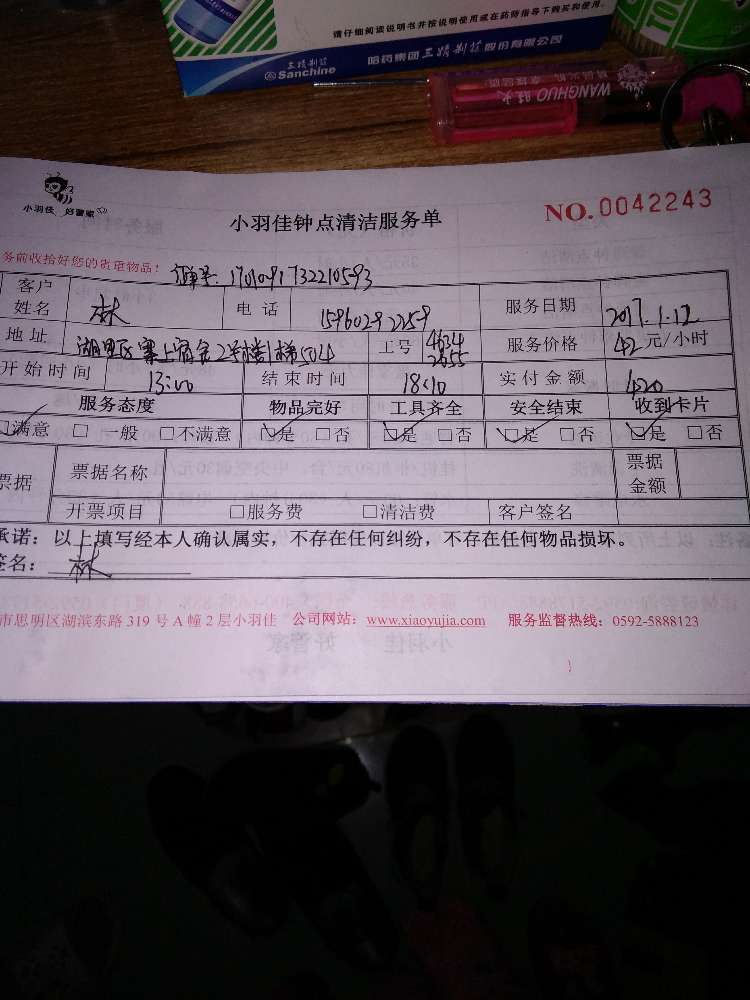 请仔细阅读说明书并按说明使用或在药师指导下购买和使用.
三精制药
Sanchine
哈药集团三精制药股份有限公司
WANGHUO 旺火
小羽佳 好管家
小羽佳钟点清洁服务单
NO.0042243
务前收拾好您的贵重物品!
订单号. 1701091732210593
客户姓名 林 电话 15960292259 服务日期 2017.1.12
地址 湖里区寨上宿舍2号楼1梯504 工号 4634 2655 服务价格 42 元/小时
开始时间 13:00 结束时间 18:10 实付金额 420
服务态度 物品完好 工具齐全 安全结束 收到卡片
□满意 □一般 □不满意 □是 □否 □是 □否 □是 □否 □是 □否
票据 票据名称 票据金额
开票项目 □服务费 □清洁费 客户签名
承诺:以上填写经本人确认属实,不存在任何纠纷,不存在任何物品损坏。
签名: 林
市思明区湖滨东路 319 号 A 幢 2 层小羽佳 公司网站:www.xiaoyujia.com 服务监督热线:0592-5888123